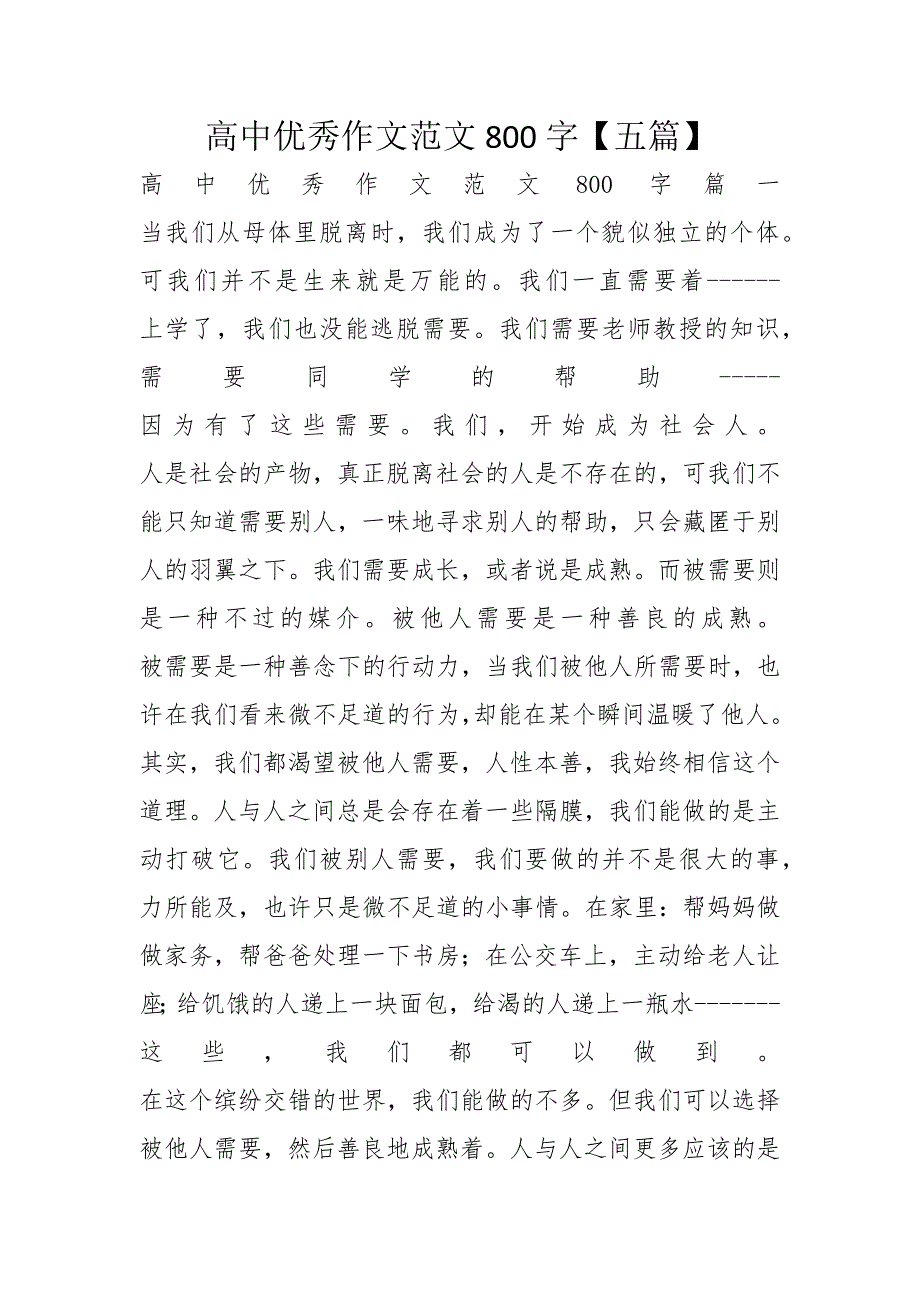 高中优秀作文范文 800 字【五篇】
高中优秀作文范文 800 字篇一
当我们从母体里脱离时，我们成为了一个貌似独立的个体。
可我们并不是生来就是万能的。我们一直需要着------
上学了，我们也没能逃脱需要。我们需要老师教授的知识，
需要同学的帮助-----
因为有了这些需要。我们，开始成为社会人。
人是社会的产物，真正脱离社会的人是不存在的，可我们不
能只知道需要别人，一味地寻求别人的帮助，只会藏匿于别
人的羽翼之下。我们需要成长，或者说是成熟。而被需要则
是一种不过的媒介。被他人需要是一种善良的成熟。
被需要是一种善念下的行动力，当我们被他人所需要时，也
许在我们看来微不足道的行为,却能在某个瞬间温暖了他人。
其实，我们都渴望被他人需要，人性本善，我始终相信这个
道理。人与人之间总是会存在着一些隔膜，我们能做的是主
动打破它。我们被别人需要，我们要做的并不是很大的事，
力所能及，也许只是微不足道的小事情。在家里：帮妈妈做
做家务，帮爸爸处理一下书房；在公交车上，主动给老人让
座；给饥饿的人递上一块面包，给渴的人递上一瓶水-------
这些，我们都可以做到。
在这个缤纷交错的世界，我们能做的不多。但我们可以选择
被他人需要，然后善良地成熟着。人与人之间更多应该的是